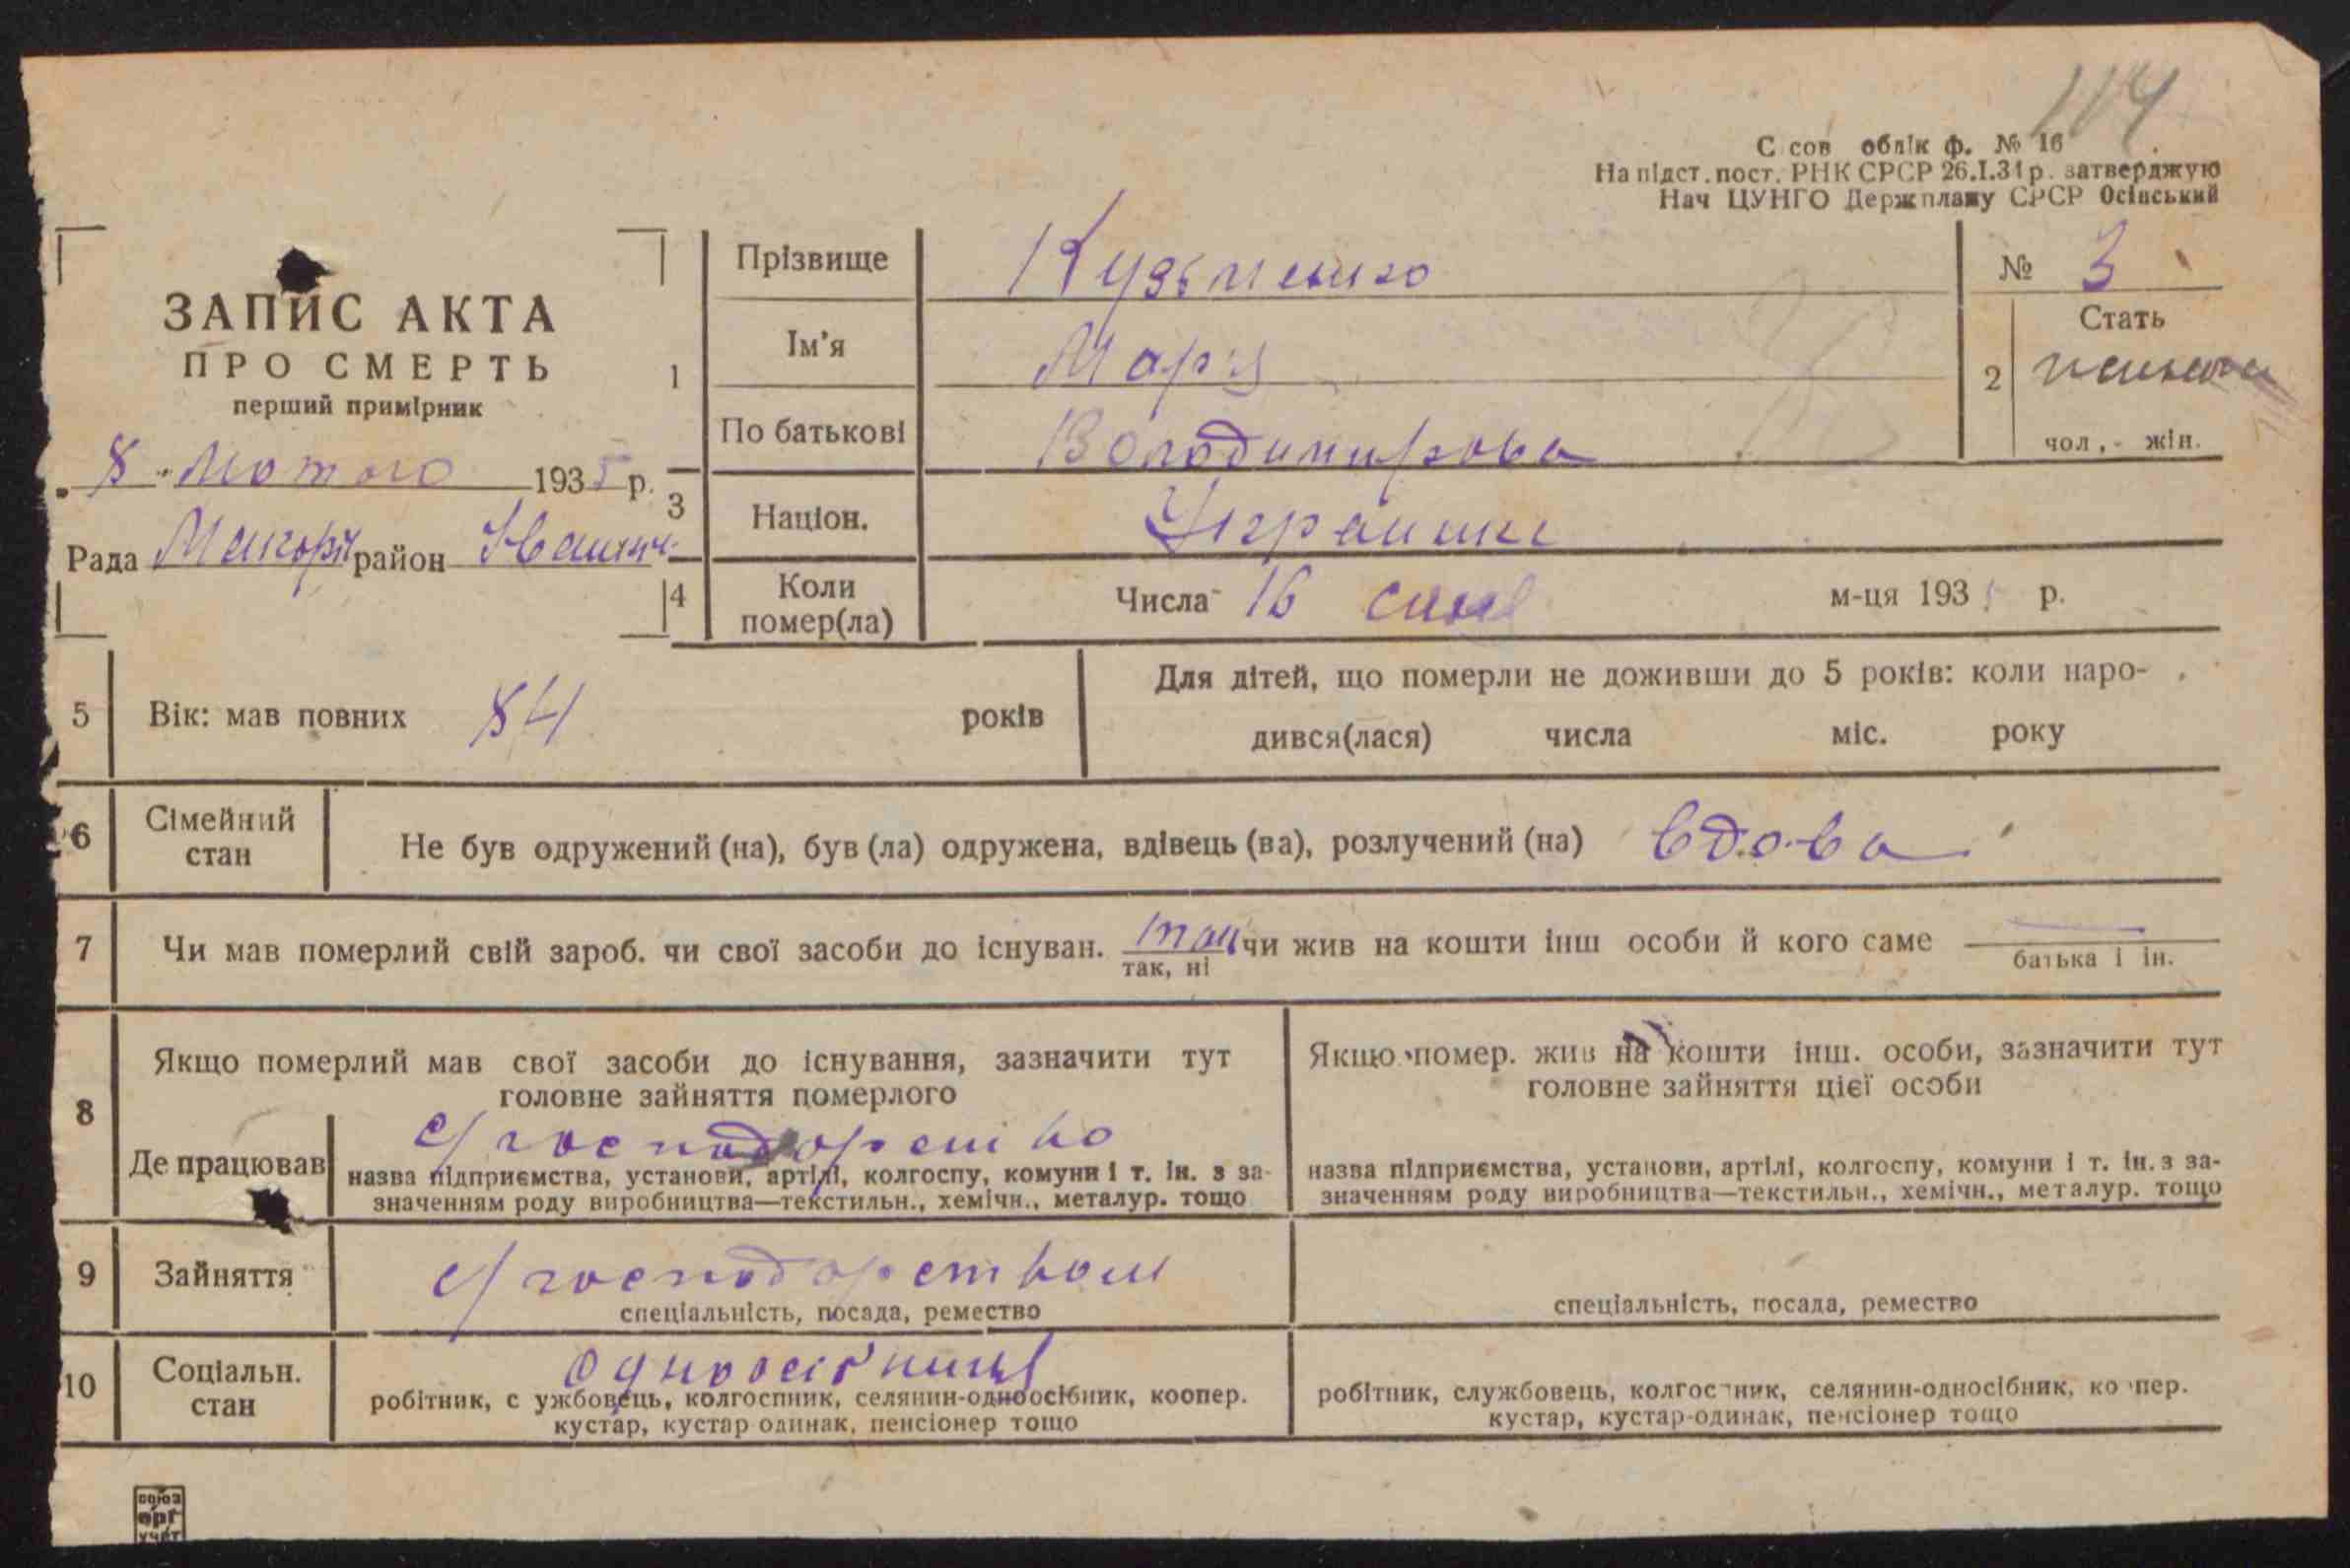 114
С сов облік ф. № 16
На підст. пост. РНК СРСР 26.I.31 р. затверджую
Нач ЦУНГО Держплану СРСР Осінський
ЗАПИС АКТА
ПРО СМЕРТЬ
перший примірник
8 Лютого 1935 р.
Рада район Іванич.
1 Прізвище Кузьменко
Ім'я Марія
По батькові Володимирова
№ 3
2 Стать
чол, - жін.
3 Націон. Українка
4 Коли помер(ла) Числа 16 м-ця 193 р.
5 Вік: мав повних 84 років
Для дітей, що померли не доживши до 5 років: коли наро-
дився(лася) числа міс. року
6 Сімейний стан Не був одружений (на), був (ла) одружена, вдівець (ва), розлучений (на) вдова
7 Чи мав померлий свій зароб. чи свої засоби до існуван. так чи жив на кошти інш особи й кого саме
так, ні
батька і ін.
8 Якщо померлий мав свої засоби до існування, зазначити тут
головне зайняття померлого
Де працював с/господарство
назва підприємства, установи, артілі, колгоспу, комуни і т. ін. з за-
значенням роду виробництва—текстильн., хемічн., металур. тощо
Якщо помер. жив на кошти інш. особи, зазначити тут
головне зайняття цієї особи
назва підприємства, установи, артілі, колгоспу, комуни і т. ін. з за-
значенням роду виробництва—текстильн., хемічн., металур. тощо
9 Зайняття с/господарством
спеціальність, посада, ремество
спеціальність, посада, ремество
10 Соціальн. стан одноосібниця
робітник, с ужбовець, колгоспник, селянин-одноосібник, коопер.
кустар, кустар одинак, пенсіонер тощо
робітник, службовець, колгос ник, селянин-односібник, ко пер.
кустар, кустар-одинак, пенсіонер тощо
союз
орг
учёт